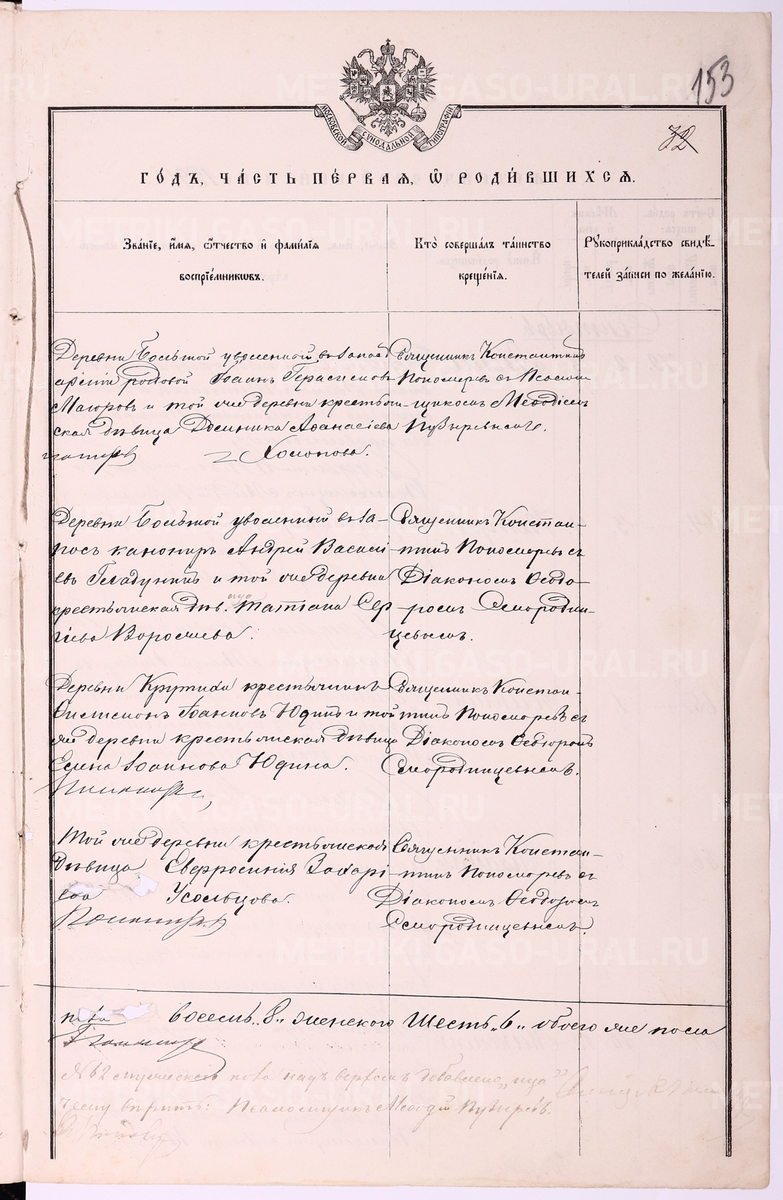 153
72
МОСКОВСКОЙ СѴНОДАЛЬНОЙ ТИПОГРАФІИ
ГО́ДЪ, ЧА́СТЬ ПЕ́РВАЯ, Ѡ РОДИ́ВШИХСЯ.
Зва́нїе, и́мя, ѻ҆́тчество и҆ фами́лїя
воспрїе́мникѡвъ.
Кто̀ соверша́лъ та́инство
креще́нїя.
Рꙋкоприкла́дство свидѣ́-
телей за́писи по жела́нїю.
Деревни Большой уволенной въ запас
армiи рядовой Іоаннъ Герасимовъ
Маюровъ и той же деревни крестьян-
ская дѣвица Домника Аѳанасiева
Хомонова.
Священникъ Константинъ
Пономаревъ съ Псалом-
щикомъ Меѳодiемъ
Пузыревымъ.
Деревни Большой уволенный въ за-
пасъ канониръ Андрей Василi
евъ Гладунинъ и той же деревни
крестьянская дѣв. ица Татiана Сер-
гiева Ворожева.
Священникъ Констан-
тинъ Пономаревъ съ
Дiакономъ Ѳеодо-
ромъ Смородин-
цевымъ.
Деревни Крутихи крестьянинъ
Симеонъ Іоанновъ Юдинъ и той
же деревни крестьянская дѣвица
Елена Іоаннова Юдина.
Священникъ Констан-
тинъ Пономаревъ съ
Дiакономъ Ѳеодоромъ
Смородинцевымъ.
Той же деревни крестьянская
дѣвица Евфросинiя Захарi
ева Усольцова.
Священникъ Констан-
тинъ Пономаревъ съ
Дiакономъ Ѳеодоромъ
Смородинцевымъ.
восемь „8„ женского шесть „6„ обоего же пола
надъ верхомъ добавлено „ица„
вѣрить: Псаломщикъ Меѳодiй Пузыревъ.
METRIKI.GASO-URAL.RU